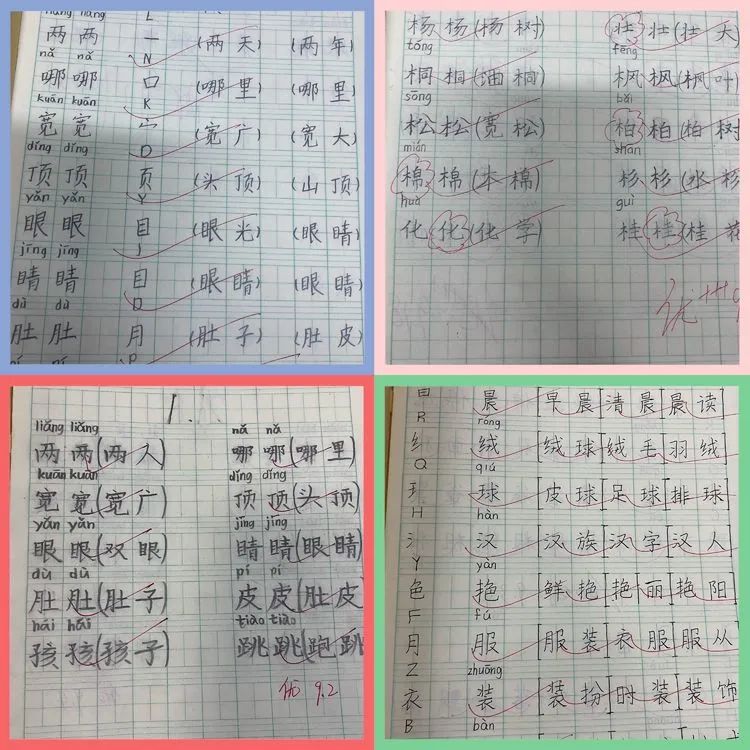 两 两 一 (两 天) (两 年)
nǎ nǎ N
哪 哪 口 (哪 里) (哪 里)
kuān kuān K
宽 宽 宀 (宽 广) (宽 大)
dǐng dǐng D
顶 顶 页 (头 顶) (山 顶)
yǎn yǎn Y
眼 眼 目 (眼 光) (眼 睛)
jīng jīng J
睛 睛 目 (眼 睛) (眼 睛)
dù dù D
肚 肚 月 (肚 子) (肚 皮)
杨 杨 (杨 树) 壮 壮 (壮 大
tóng fēng
桐 桐 (油 桐) 枫 枫 (枫 叶)
sōng bǎi
松 松 (宽 松) 柏 柏 (柏 树
mián shān
棉 棉 (木 棉) 杉 杉 (水 杉
huà guì
化 化 (化 学) 桂 桂 (桂 花
优
1.
liǎng liǎng nǎ nǎ
两 两 (两 人) 哪 哪 (哪 里)
kuān kuān dǐng dǐng
宽 宽 (宽 广) 顶 顶 (头 顶)
yǎn yǎn jīng jīng
眼 眼 (双 眼) 睛 睛 (眼 睛)
dù dù pí pí
肚 肚 (肚 子) 皮 皮 (肚 皮
hái hái tiào tiào
孩 孩 (孩 子) 跳 跳 (跑 跳
优 9.2
晨 [早 晨] [清 晨] [晨 读]
R róng
纟 绒 [绒 球] [绒 毛] [羽 绒]
Q qiú
王 球 [皮 球] [足 球] [排 球]
H hàn
氵 汉 [汉 族] [汉 字] [汉 人]
Y yàn
色 艳 [鲜 艳] [艳 丽] [艳 阳]
F fú
月 服 [服 装] [衣 服] [服 从]
Z zhuāng
衣 装 [装 扮] [时 装] [装 饰]
B bàn